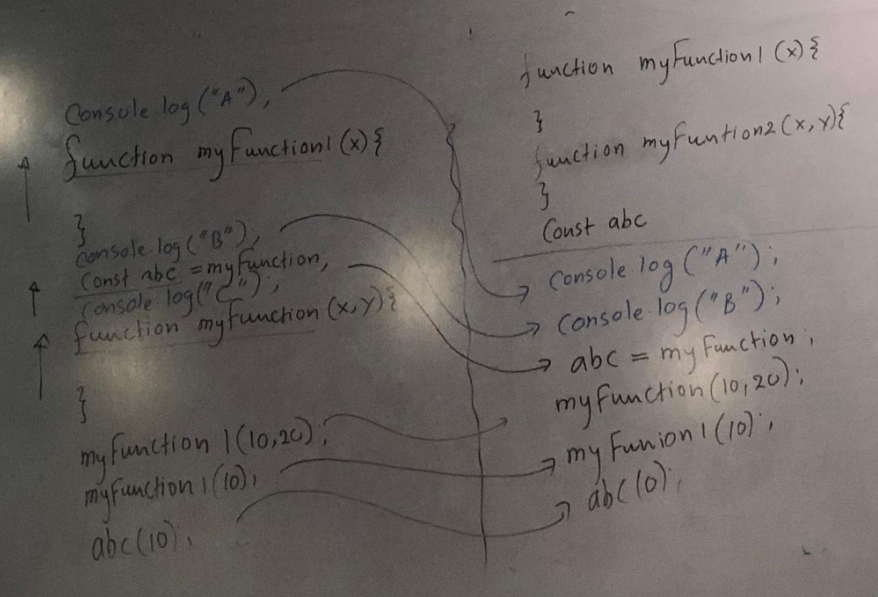 Console log ("A"),
function myfunction1 (x){
}
Console log ("B"),
Const abc = myfunction,
Console log("C");
function myfunction (x,y){
}
myfunction 1(10,20);
myfunction1(10);
abc(10);
function myfunction1 (x){
}
function myfuntion2(x,y){
}
Const abc
Console log ("A");
Console log ("B");
abc = myfunction;
myfunction(10,20);
myfunion1(10);
abc(10);